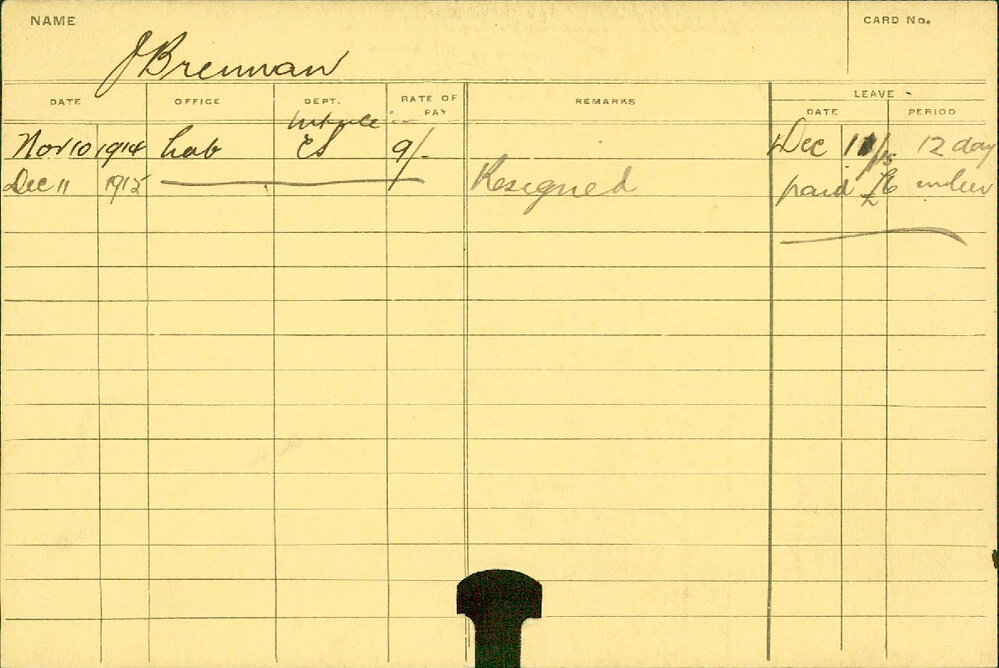 NAME
CARD No.
J Brennan
DATE OFFICE DEPT. RATE OF PAY REMARKS LEAVE
DATE PERIOD
Nov 10 1914 Lab ES 9/- Dec 11/15 12 day
Dec 11 1915 Resigned paid in lieu